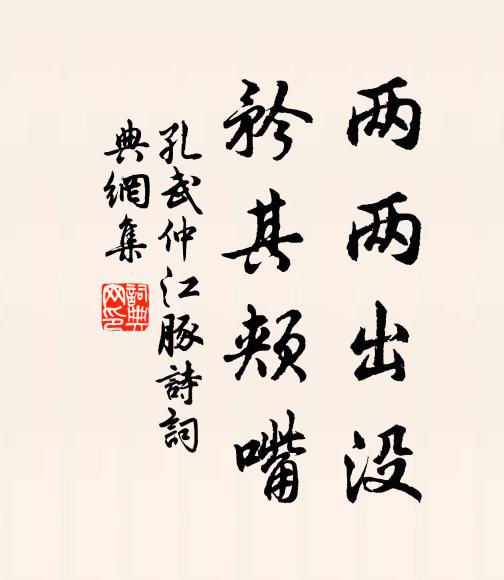 两两出没
矜其颊嘴
孔武仲江豚詩詞
典網集
詞典網印